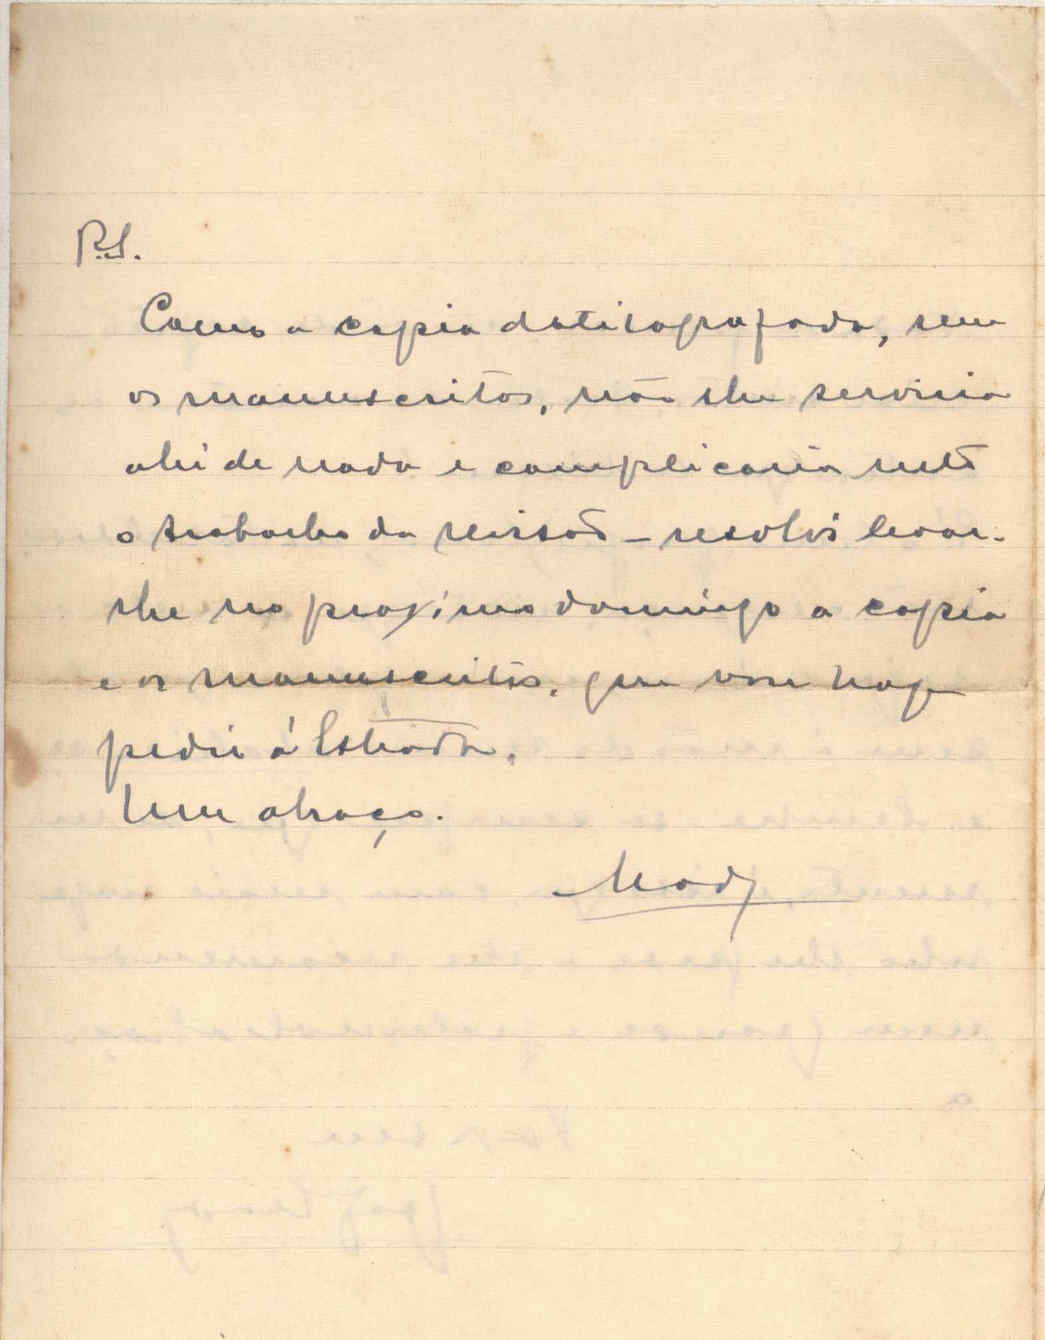 P.S.
Como a copia datilografada, sem
os manuscritos, não lhe serviria
ahi de nada e complicaria
o trabalho da revisão – resolvi levar-
lhe no proximo domingo a copia
e os manuscritos, que vou hoje
pedir á Estrada.
Um abraço.